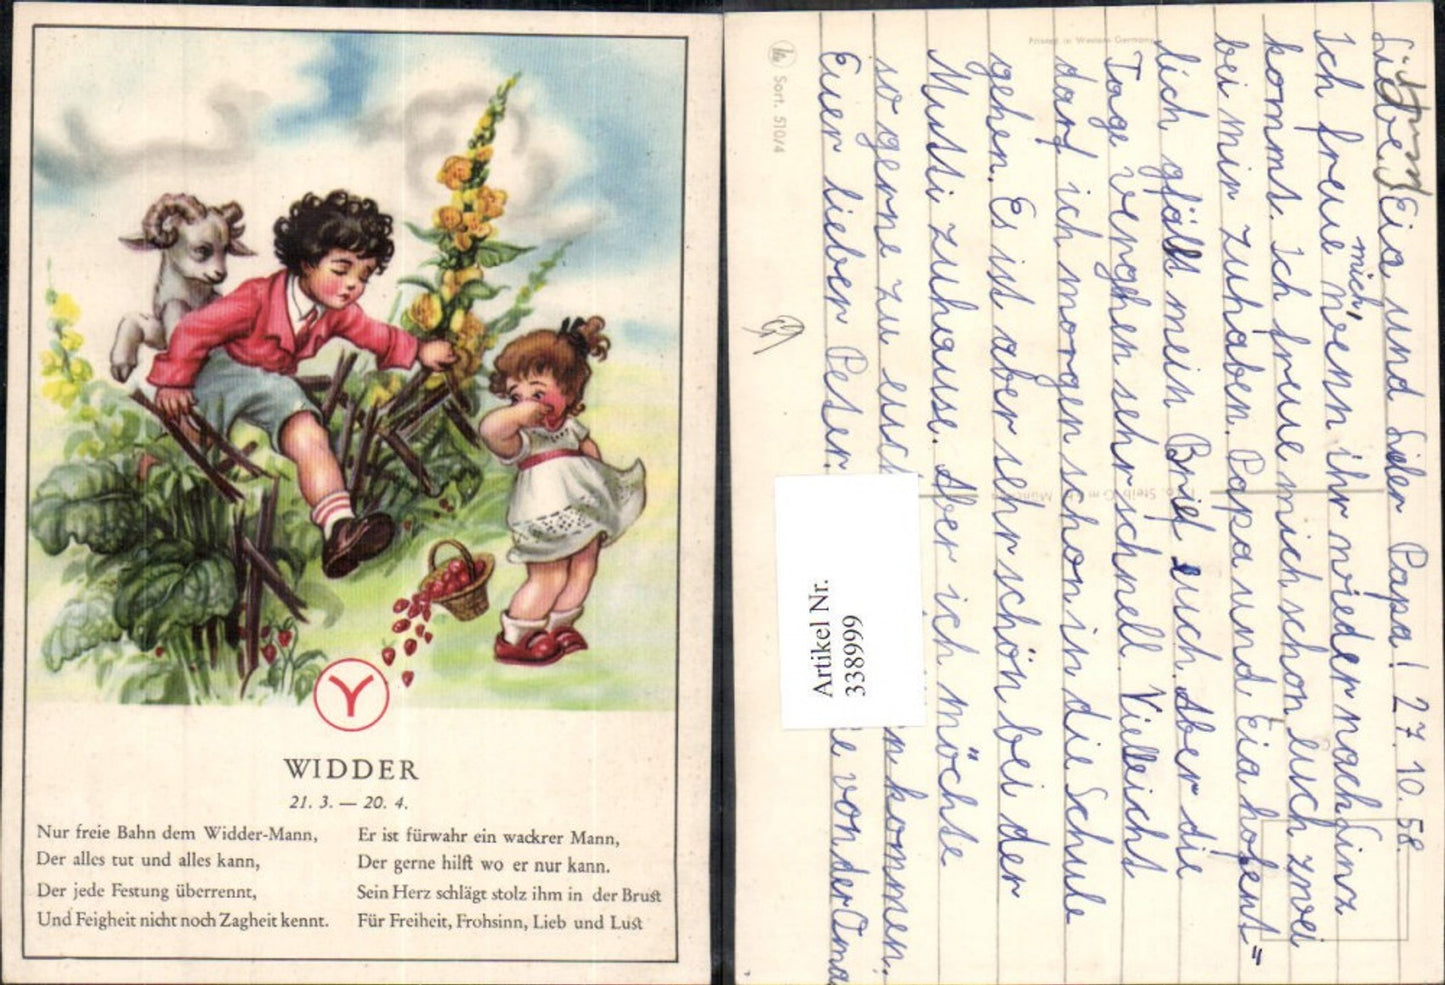 WIDDER
21. 3. — 20. 4.
Nur freie Bahn dem Widder-Mann,
Der alles tut und alles kann,
Der jede Festung überrennt,
Und Feigheit nicht noch Zagheit kennt.
Er ist fürwahr ein wackrer Mann,
Der gerne hilft wo er nur kann.
Sein Herz schlägt stolz ihm in der Brust
Für Freiheit, Frohsinn, Lieb und Lust
Printed in Western Germany
Sort. 510/4
Liebe Eia und lieber Papa! 27. 10. 58.
Ich freue mich wenn ihr wieder nach Linz
kommt. Ich freue mich schon euch zwei
bei mir zuhaben. Papa und Eia hofent=
lich gfällt mein Brief euch. Aber die
Tage vergehen sehr schnell. Vielleicht
darf ich morgen schon in die Schule
gehen. Es ist aber sehr schön bei der
Mutti zuhause. Aber ich möchte
so gerne zu euch kommen.
Euer lieber Peter. von der Oma
Artikel Nr.
338999